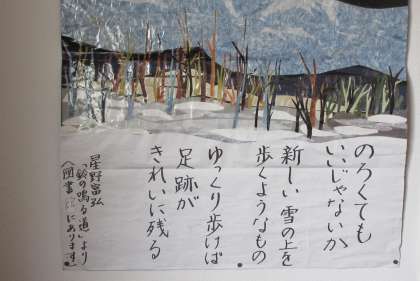 のろくても
いいじゃないか
新しい雪の上を
歩くようなもの
ゆっくり歩けば
足跡が
きれいに残る
星野富弘
「鈴の鳴る道」より
(図書にあります)